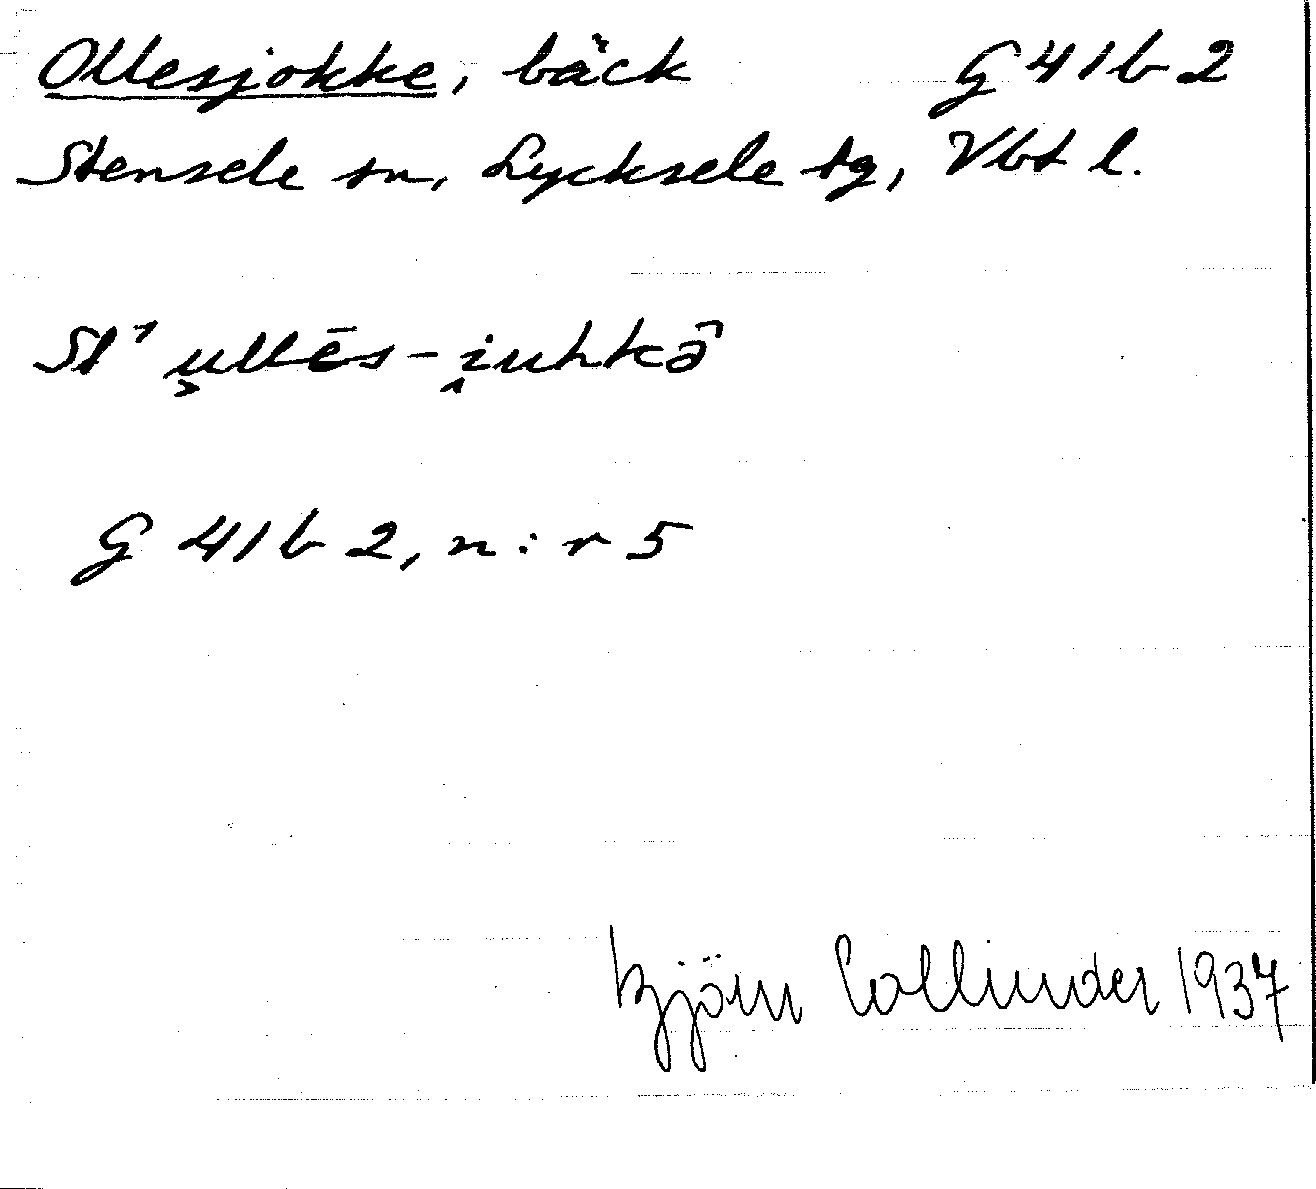 Ollesjokke, bäck G 41 b 2
Stensele sn, Lycksele tg, Vbt l.
St ’ u̬llēs-i̭uhkə̑̄
G 41 b 2, n:r 5
Björn Collinder 1937